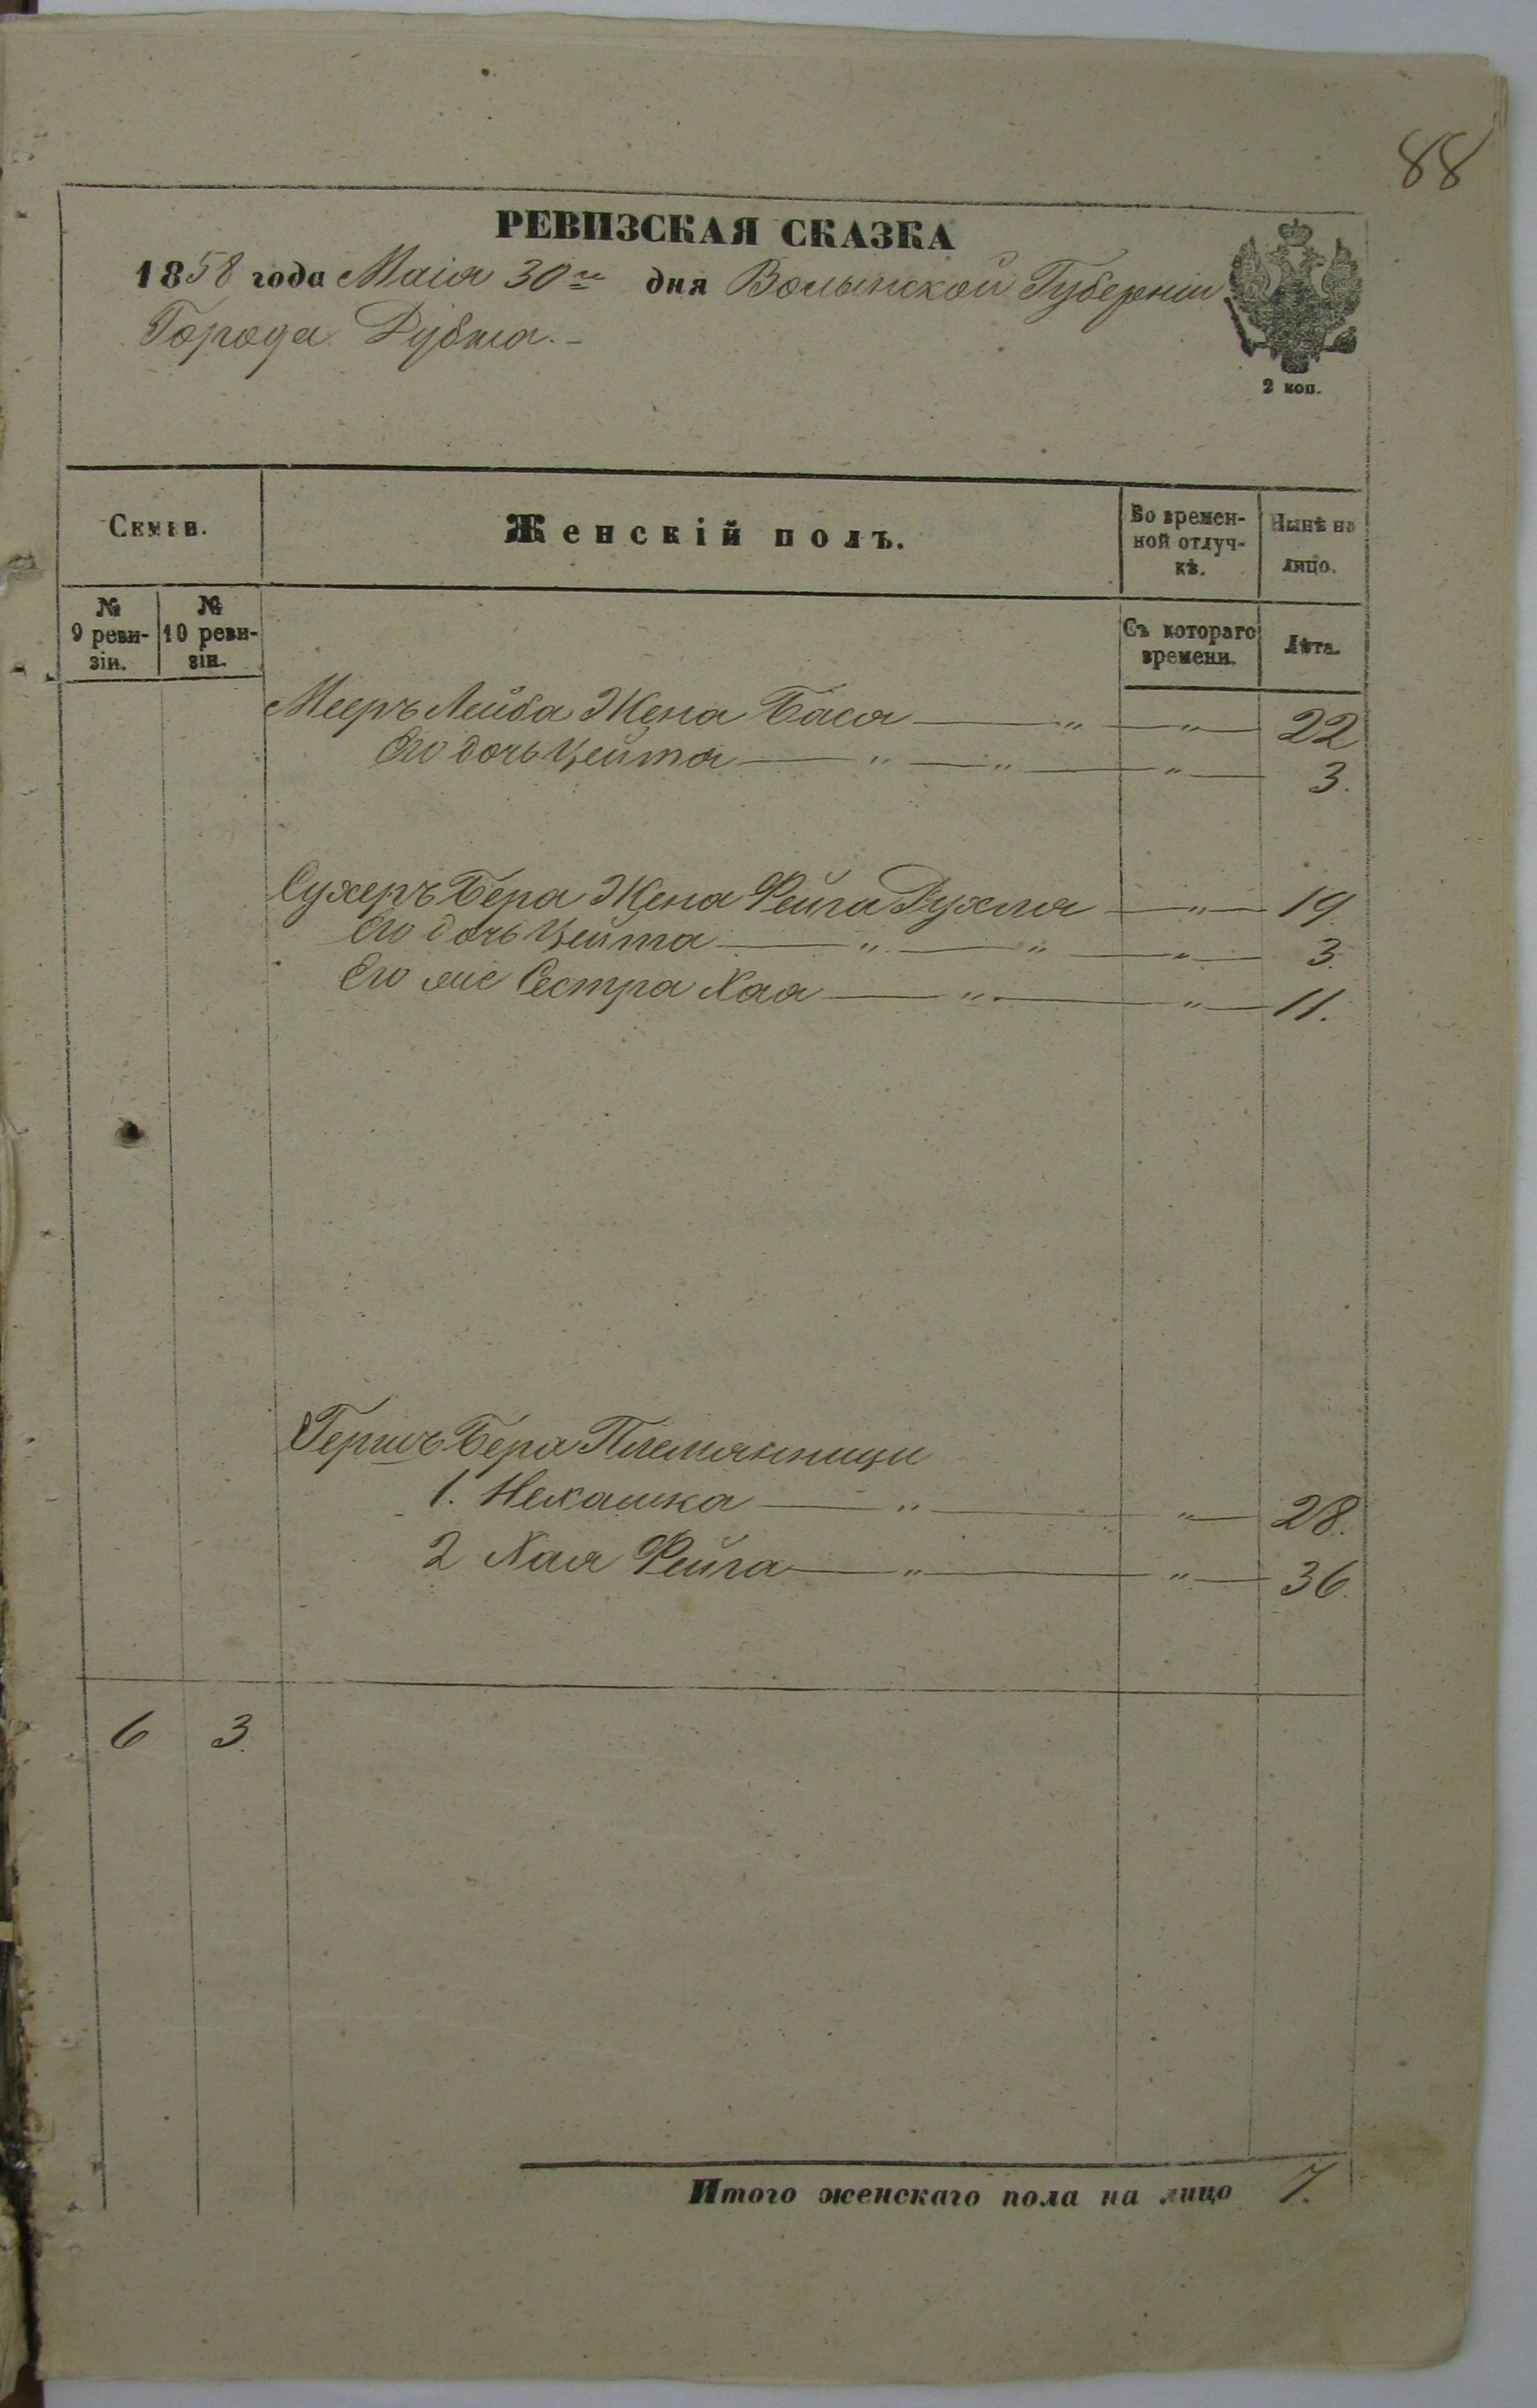 88
РЕВИЗСКАЯ СКАЗКА
1858 года Маія 30го дня Волынской Губерніи
Города Дубна.-
2 коп.
Семьи.
Женскій полъ.
Во времен-
ной отлуч-
кѣ.
Нынѣ на
лицо.
№
9 реви-
зіи.
№
10 реви-
зіи.
Съ котораго
времени.
Лѣта.
Мееръ Лейба Жена Бася — " — " — 22
Его дочь Цейтя — " — " — " — 3.
Сухеръ Бера Жена Фейга Рухля — " — 19.
Его дочь Цейтя — " — " — " — 3.
Его же Сестра Хая — " — " — 11.
Гершъ Бера Племянници
1. Нехашка — " — " — 28.
2 Хая Фейга — " — " — 36.
6 3.
Итого женскаго пола на лицо 7.